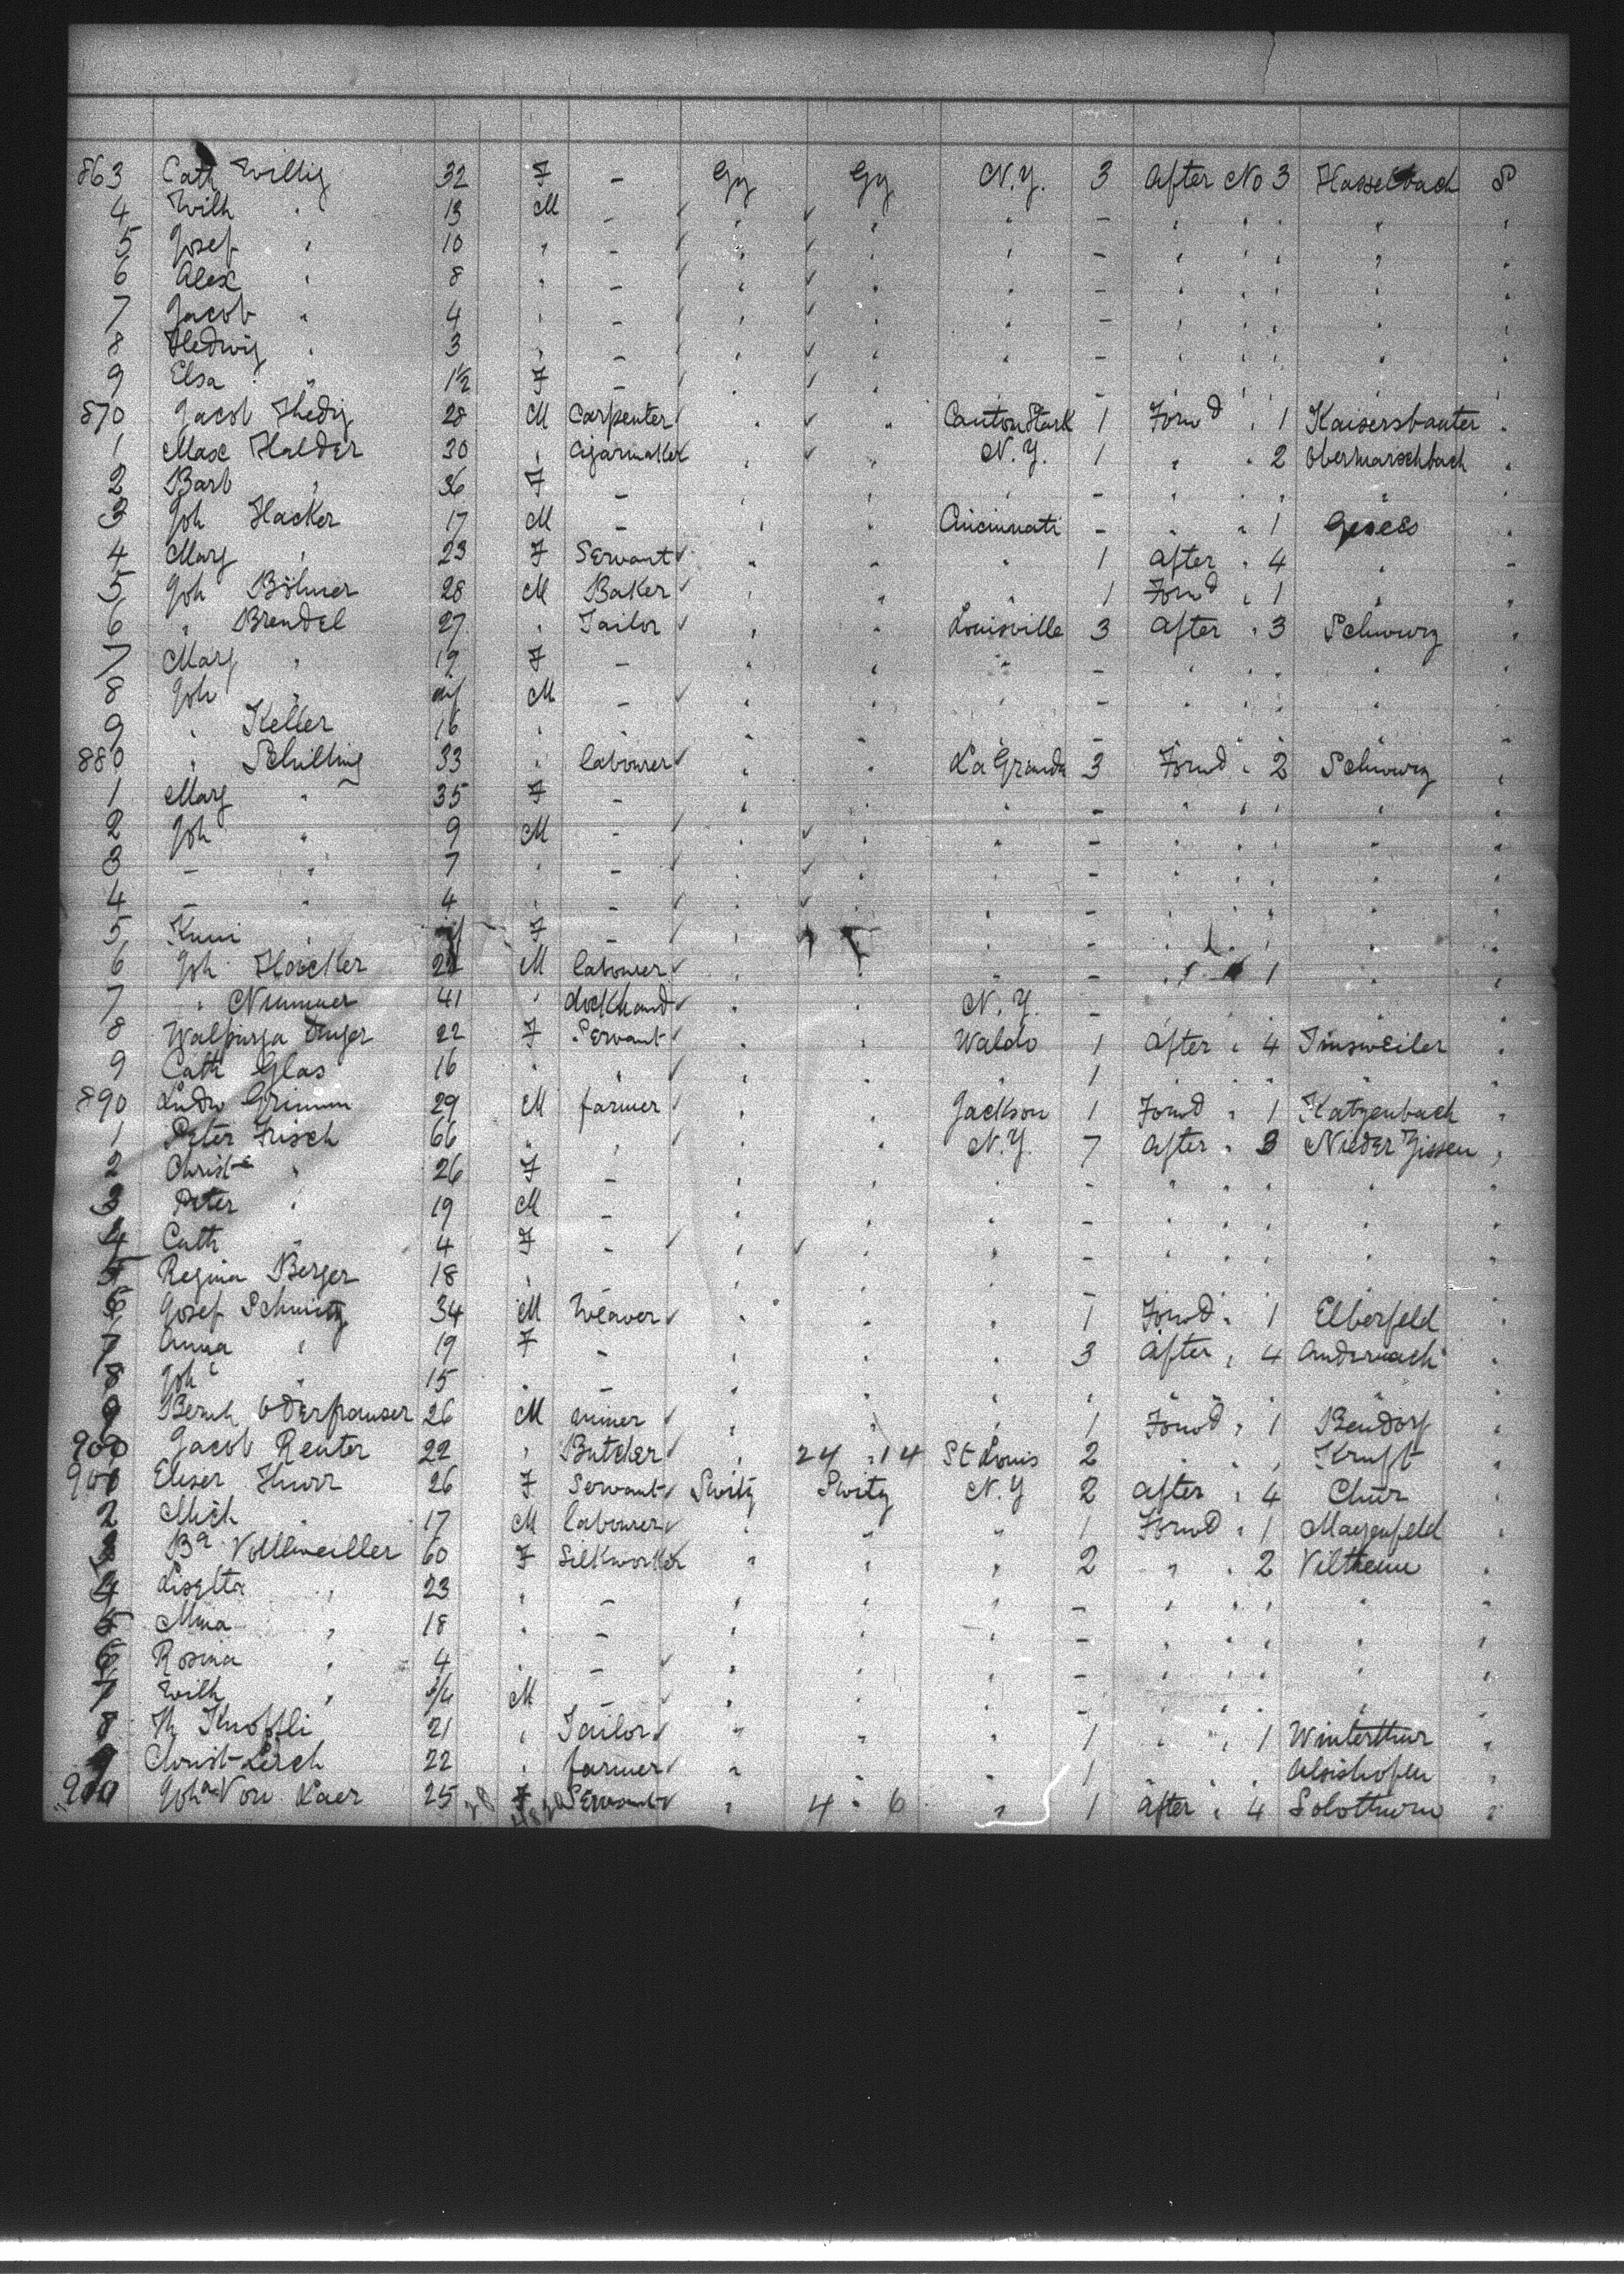 863 Cath Willig 32 F – Gy Gy N.Y. 3 After No 3 Hasselbach S
4 Wilh " 13 M – " " " – " " " " "
5 Josef " 10 " – " " " – " " " " "
6 Alex " 8 " – " " " – " " " " "
7 Jacob " 4 " – " " " – " " " " "
8 Hedwig " 3 " – " " " – " " " " "
9 Elsa " 1½ F – " " " – " " " " "
870 Jacob Thedig 28 M Carpenter " " Canton Stark 1 Forwd " 1 Kaisersbauter "
1 Max Halder 30 " Cigarmaker " " N.Y. 1 " " 2 Obermarschbach "
2 Barb " 36 F – " " " – " " " " "
3 Joh Hacker 17 M – " " Cincinnati – " " 1 Gesees "
4 Marg " 23 F Servant " " " 1 After " 4 " "
5 Joh Böhner 28 M Baker " " " 1 Forwd " 1 " "
6 " Brendel 27 " Tailor " " Louisville 3 After " 3 "
7 Marg " 19 F – " " " – " " " " "
8 Joh " M – " " " – " " " " "
9 " Keller 16 " " " " – " " " " "
880 " Schilling 33 " labourer " " La Grande 3 Forwd " 2 "
1 Marg " 35 F – " " " – " " " " "
2 Joh " 9 M – " " " – " " " " "
3 – " 7 " – " " " – " " " " "
4 – " 4 " – " " " – " " " " "
5 Kuni " F – " " " – " " 1 " "
6 Joh Haecker M labourer " " " – " 1 " "
7 " 41 " dockhand " " N.Y. – " " " " "
8 Walpurga 22 F Servant " " Waldo 1 After " 4 Imsweiler "
9 Cath Glas 16 " " " " " 1 " " " " "
890 Ludw Grimm 29 M farmer " " Jackson 1 Forwd " 1 Katzenbach "
1 Peter Frisch 66 " " " " N.Y. 7 After " 3 Nieder Zissen "
2 Christe " 26 F – " " " – " " " " "
3 Peter " 19 M – " " " – " " " " "
4 Cath " 4 F – " " " – " " " " "
5 Regina Berger 18 " – " " " – " " " " "
6 Josef Schmitz 34 M Weaver " " " 1 Forwd " 1 Elberfeld "
7 Anna " 19 F – " " " 3 After " 4 Andernach "
8 Joha " 15 " – " " " " " " " " "
9 Bernh 26 M miner " " " 1 Forwd " 1 Bendorf "
900 Jacob Reuter 22 " Butcher " 24 " 14 St Louis 2 " " " Kruft "
901 Eliser Thurr 26 F Servant Switz Switz N.Y 2 After " 4 Chur "
2 Mich " 17 M labourer " " " 1 Forwd " 1 Mayenfeld "
3 Ba Vollweiller 60 F Silkworker " " " 2 " " 2 "
4 Lisetta " 23 " – " " " – " " " " "
5 " 18 " – " " " – " " " " "
6 Rosina " 4 " – " " " – " " " " "
7 Wilh " M – " " " – " " " " "
8 Th Knöpfli 21 " Tailor " " " 1 " " 1 Winterthur "
9 Christ Lerch 22 " farmer " " " 1 " " " "
910 Joha Von Kaer 25 F Servant " 4 " 6 " 1 After " 4 Solothurn "